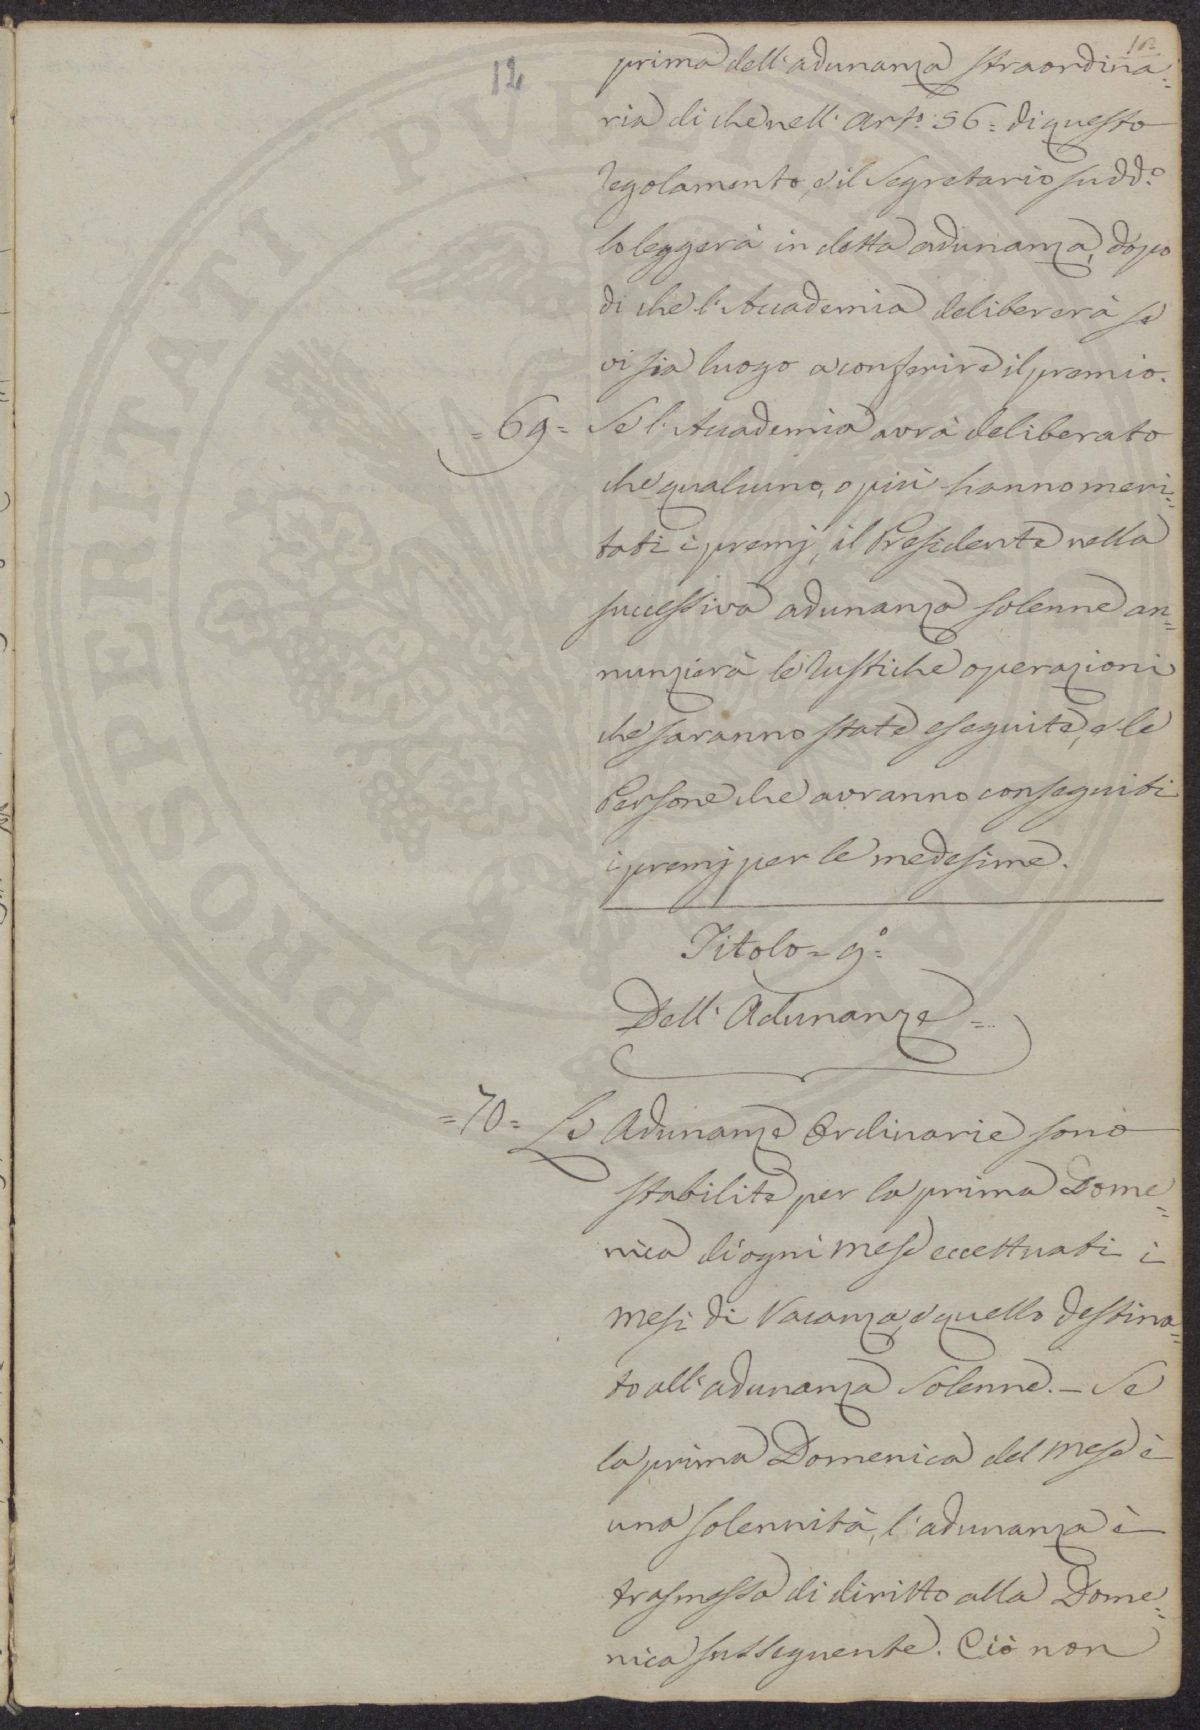 102
12
prima dell'adunanza straordina=
ria di che nell'Art.º 56= di questo
regolamento, e il Segretario sudd.º
lo leggerà in detta adunanza, dopo
di che l'Accademia delibererà se
vi sia luogo a conferire il premio.
=69= Se l'Accademia avrà deliberato
che qualcuno, o più hanno meri=
tati i premj, il Presidente nella
successiva adunanza solenne an=
nunzierà le rustiche operazioni
che saranno state eseguite, e le
Persone che avranno conseguiti
i premj per le medesime.
Titolo= 9º=
Dell'Adunanze=
=70= Le Adunanze Ordinarie sono
stabilite per la prima Dome=
nica di ogni mese eccettuati i
mesi di Vacanza, e quello destina=
to all'adunanza Solenne. – Se
la prima Domenica del mese è
una solennità, l'adunanza è
trasmessa di diritto alla Dome=
nica susseguente. Ciò non
PROSPERITATI PUBLICAE